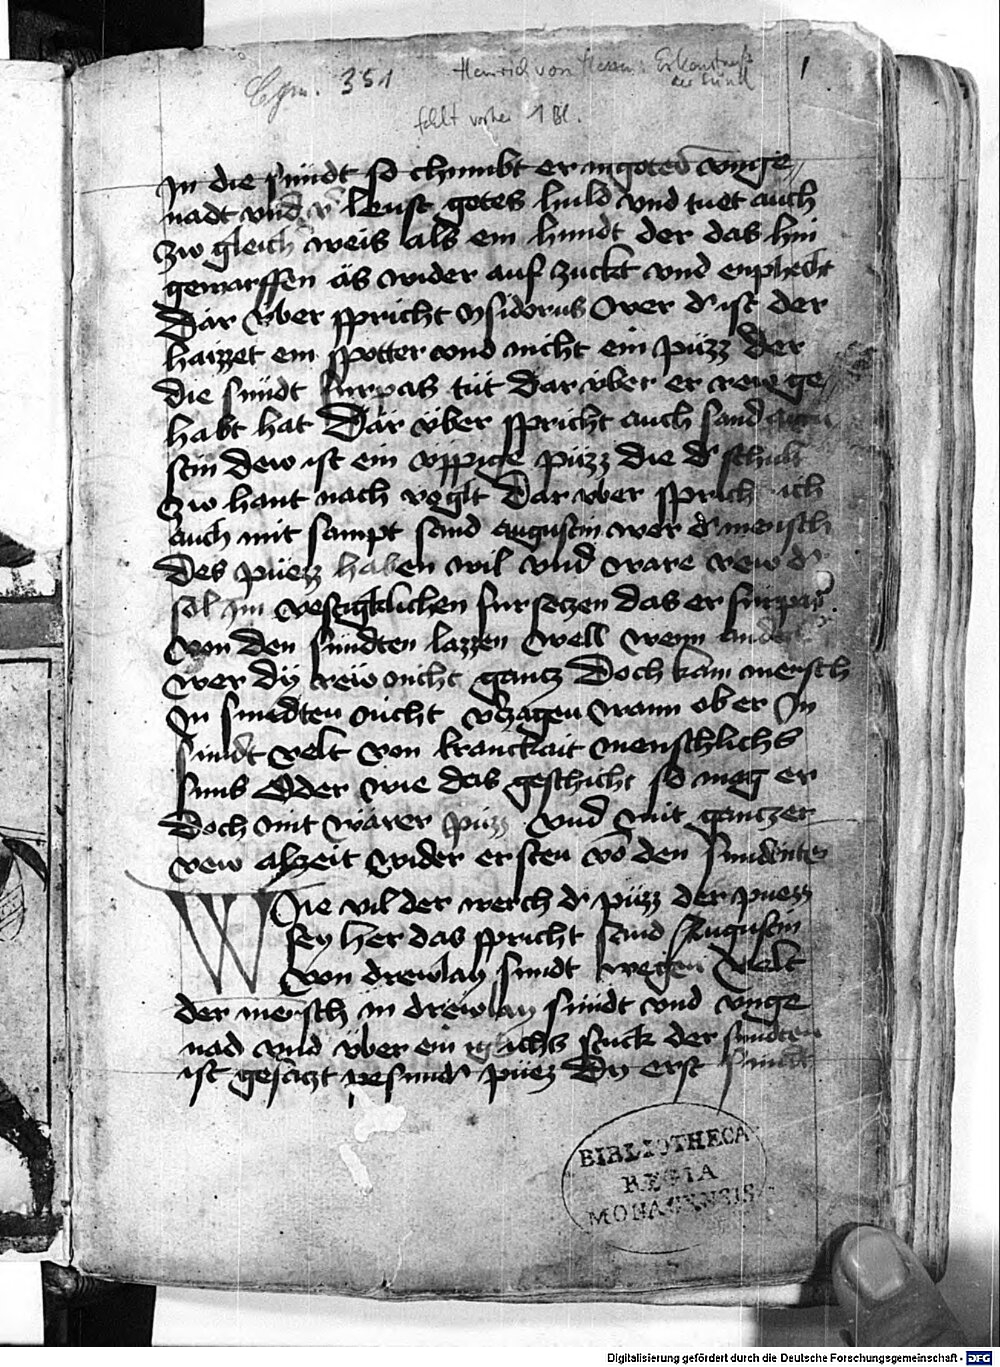 Cgm. 351
Heinrich von Hessen: Erkantnuß
der Sünd
1
fehlt vorher 1 Bl.
In die sündt so chumbt er in gotes vnge
nadt vnd v̾leust gotes huld vnd tuet auch
zw gleich weis als ein hundt der das hin
geworffen äs wider auf zuckt vnd enphecht
Dar vber spricht ysidorus Wer d̾ ist der
haizzet ein spotter vnd nicht ein püzz der
die sündt furpas tüt dar vber er rew ge
habt hat Dar vber spricht auch sand
stin dew ist ein vppige püzz die d̾
zw hant nach volgt Dar vber sprich ich
auch mit sampt sand augustin wer d̾ mensch
des püezz haben wil vnd ware rew d̾
sol im vestigklichen fur seczen das er furpas
von den sündten lazzen well wenn
wer dy rew nicht gantz Doch kain mensch
In sundten nicht v̾zagen wann ob er In
sündt velt von kranckait menschlichs
sins Oder wie das geschicht so mag er
doch mit warer püzz vnd mit gantzer
rew alzeit wider ersten vō den sundten
Wie vil der werch d̾ püzz der puezz
sey her das spricht sand Augustin
von drewlay sündt wegen velt
der mensch in drewlay sündt vnd vnge
nad vnd vber ein iglichs stuck der sündten
ist gesaczt pesunder püez Dy erst sündt
BIBLIOTHECA
REGIA
MONACENSIS
Digitalisierung gefördert durch die Deutsche Forschungsgemeinschaft - DFG